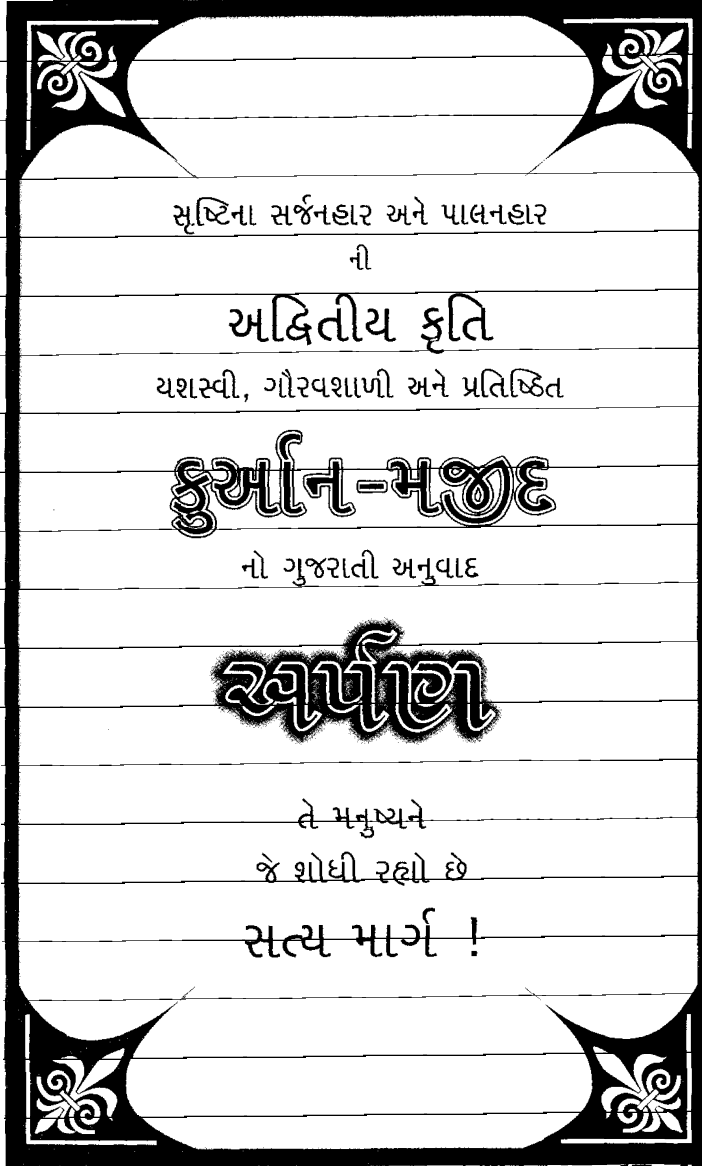 સૃષ્ટિના સર્જનહાર અને પાલનહાર
ની
અદ્વિતીય કૃતિ
યશસ્વી, ગૌરવશાળી અને પ્રતિષ્ઠિત
કુર્આન-મજીદ
નો ગુજરાતી અનુવાદ
અર્પણ
તે મનુષ્યને
જે શોધી રહ્યો છે
સત્ય માર્ગ !